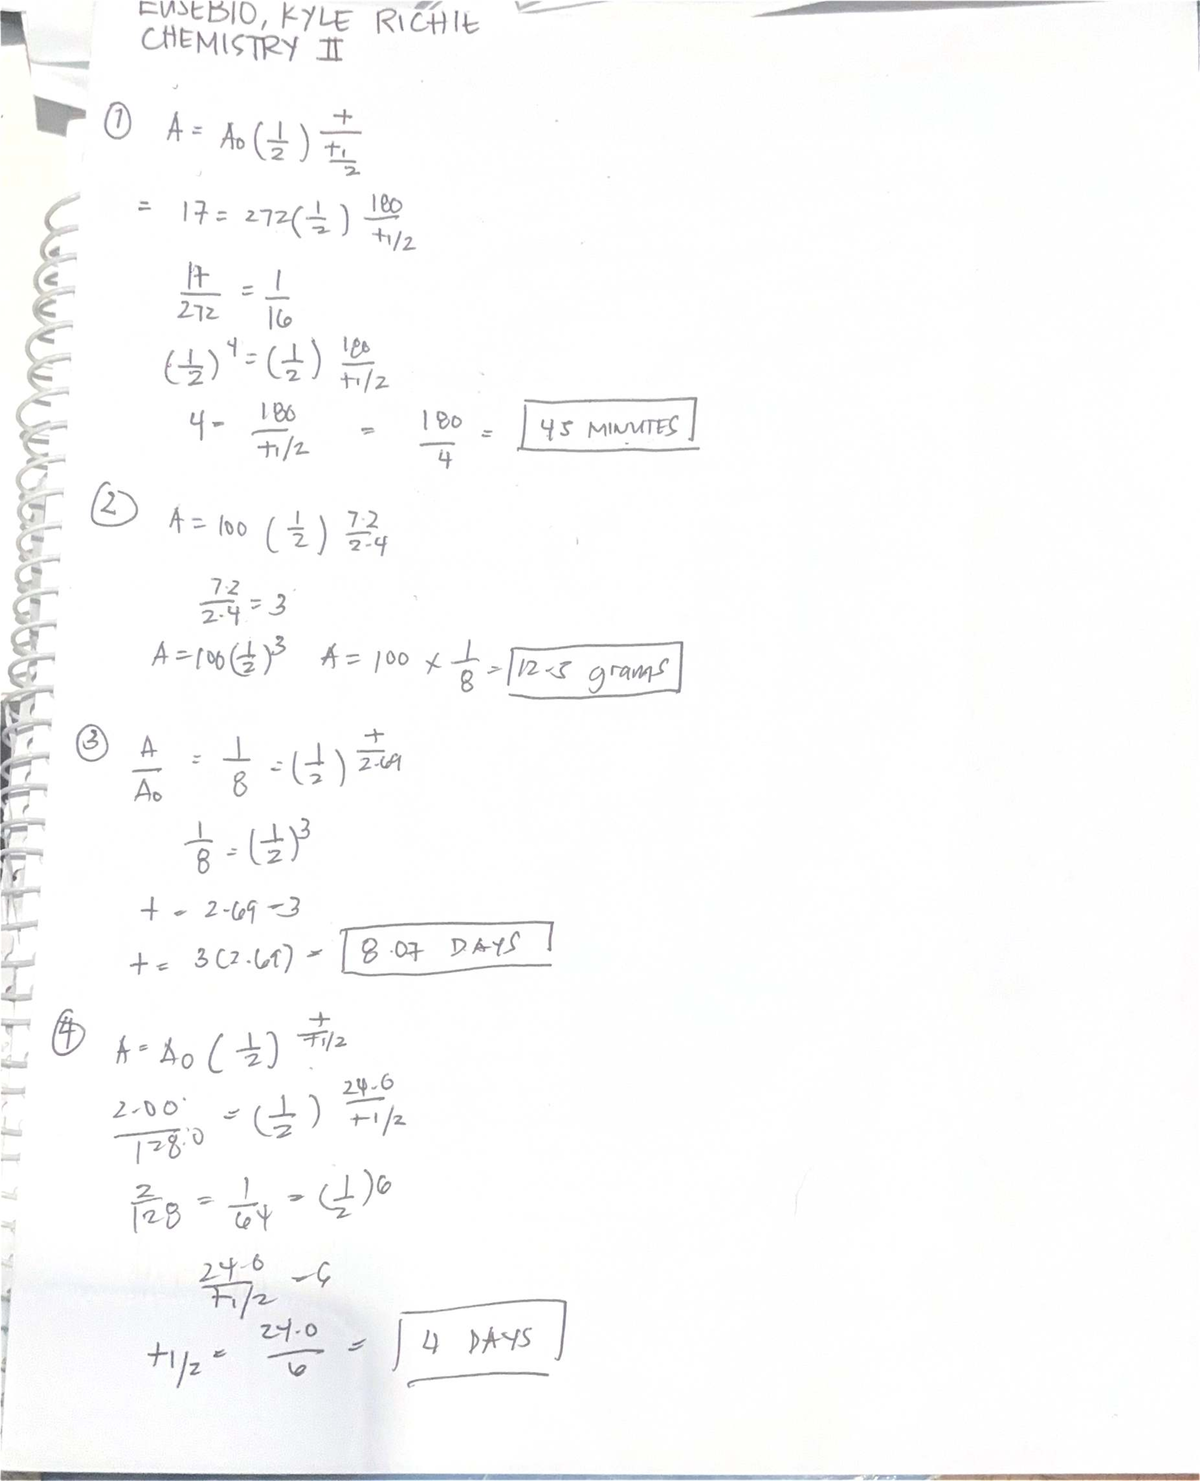 EUSEBIO, KYLE RICHIE
CHEMISTRY II
① A = A0 (1/2) t/t1/2
= 17 = 272 (1/2) 180/t1/2
17/272 = 1/16
(1/2)^4 = (1/2) 180/t1/2
4 - 180/t1/2 = 180/4 = 45 MINUTES
② A = 100 (1/2) 7.2/2.4
7.2/2.4 = 3
A = 100 (1/2)^3 A = 100 x 1/8 = 12.5 grams
③ A/A0 = 1/8 = (1/2) t/2.69
1/8 = (1/2)^3
t = 2.69 - 3
t = 3(2.69) = 8.07 DAYS
④ A = A0 (1/2) t/t1/2
2.00/128.0 = (1/2) 24.0/t1/2
2/128 = 1/64 = (1/2)6
24.0/t1/2 - 6
t1/2 = 24.0/6 = 4 DAYS